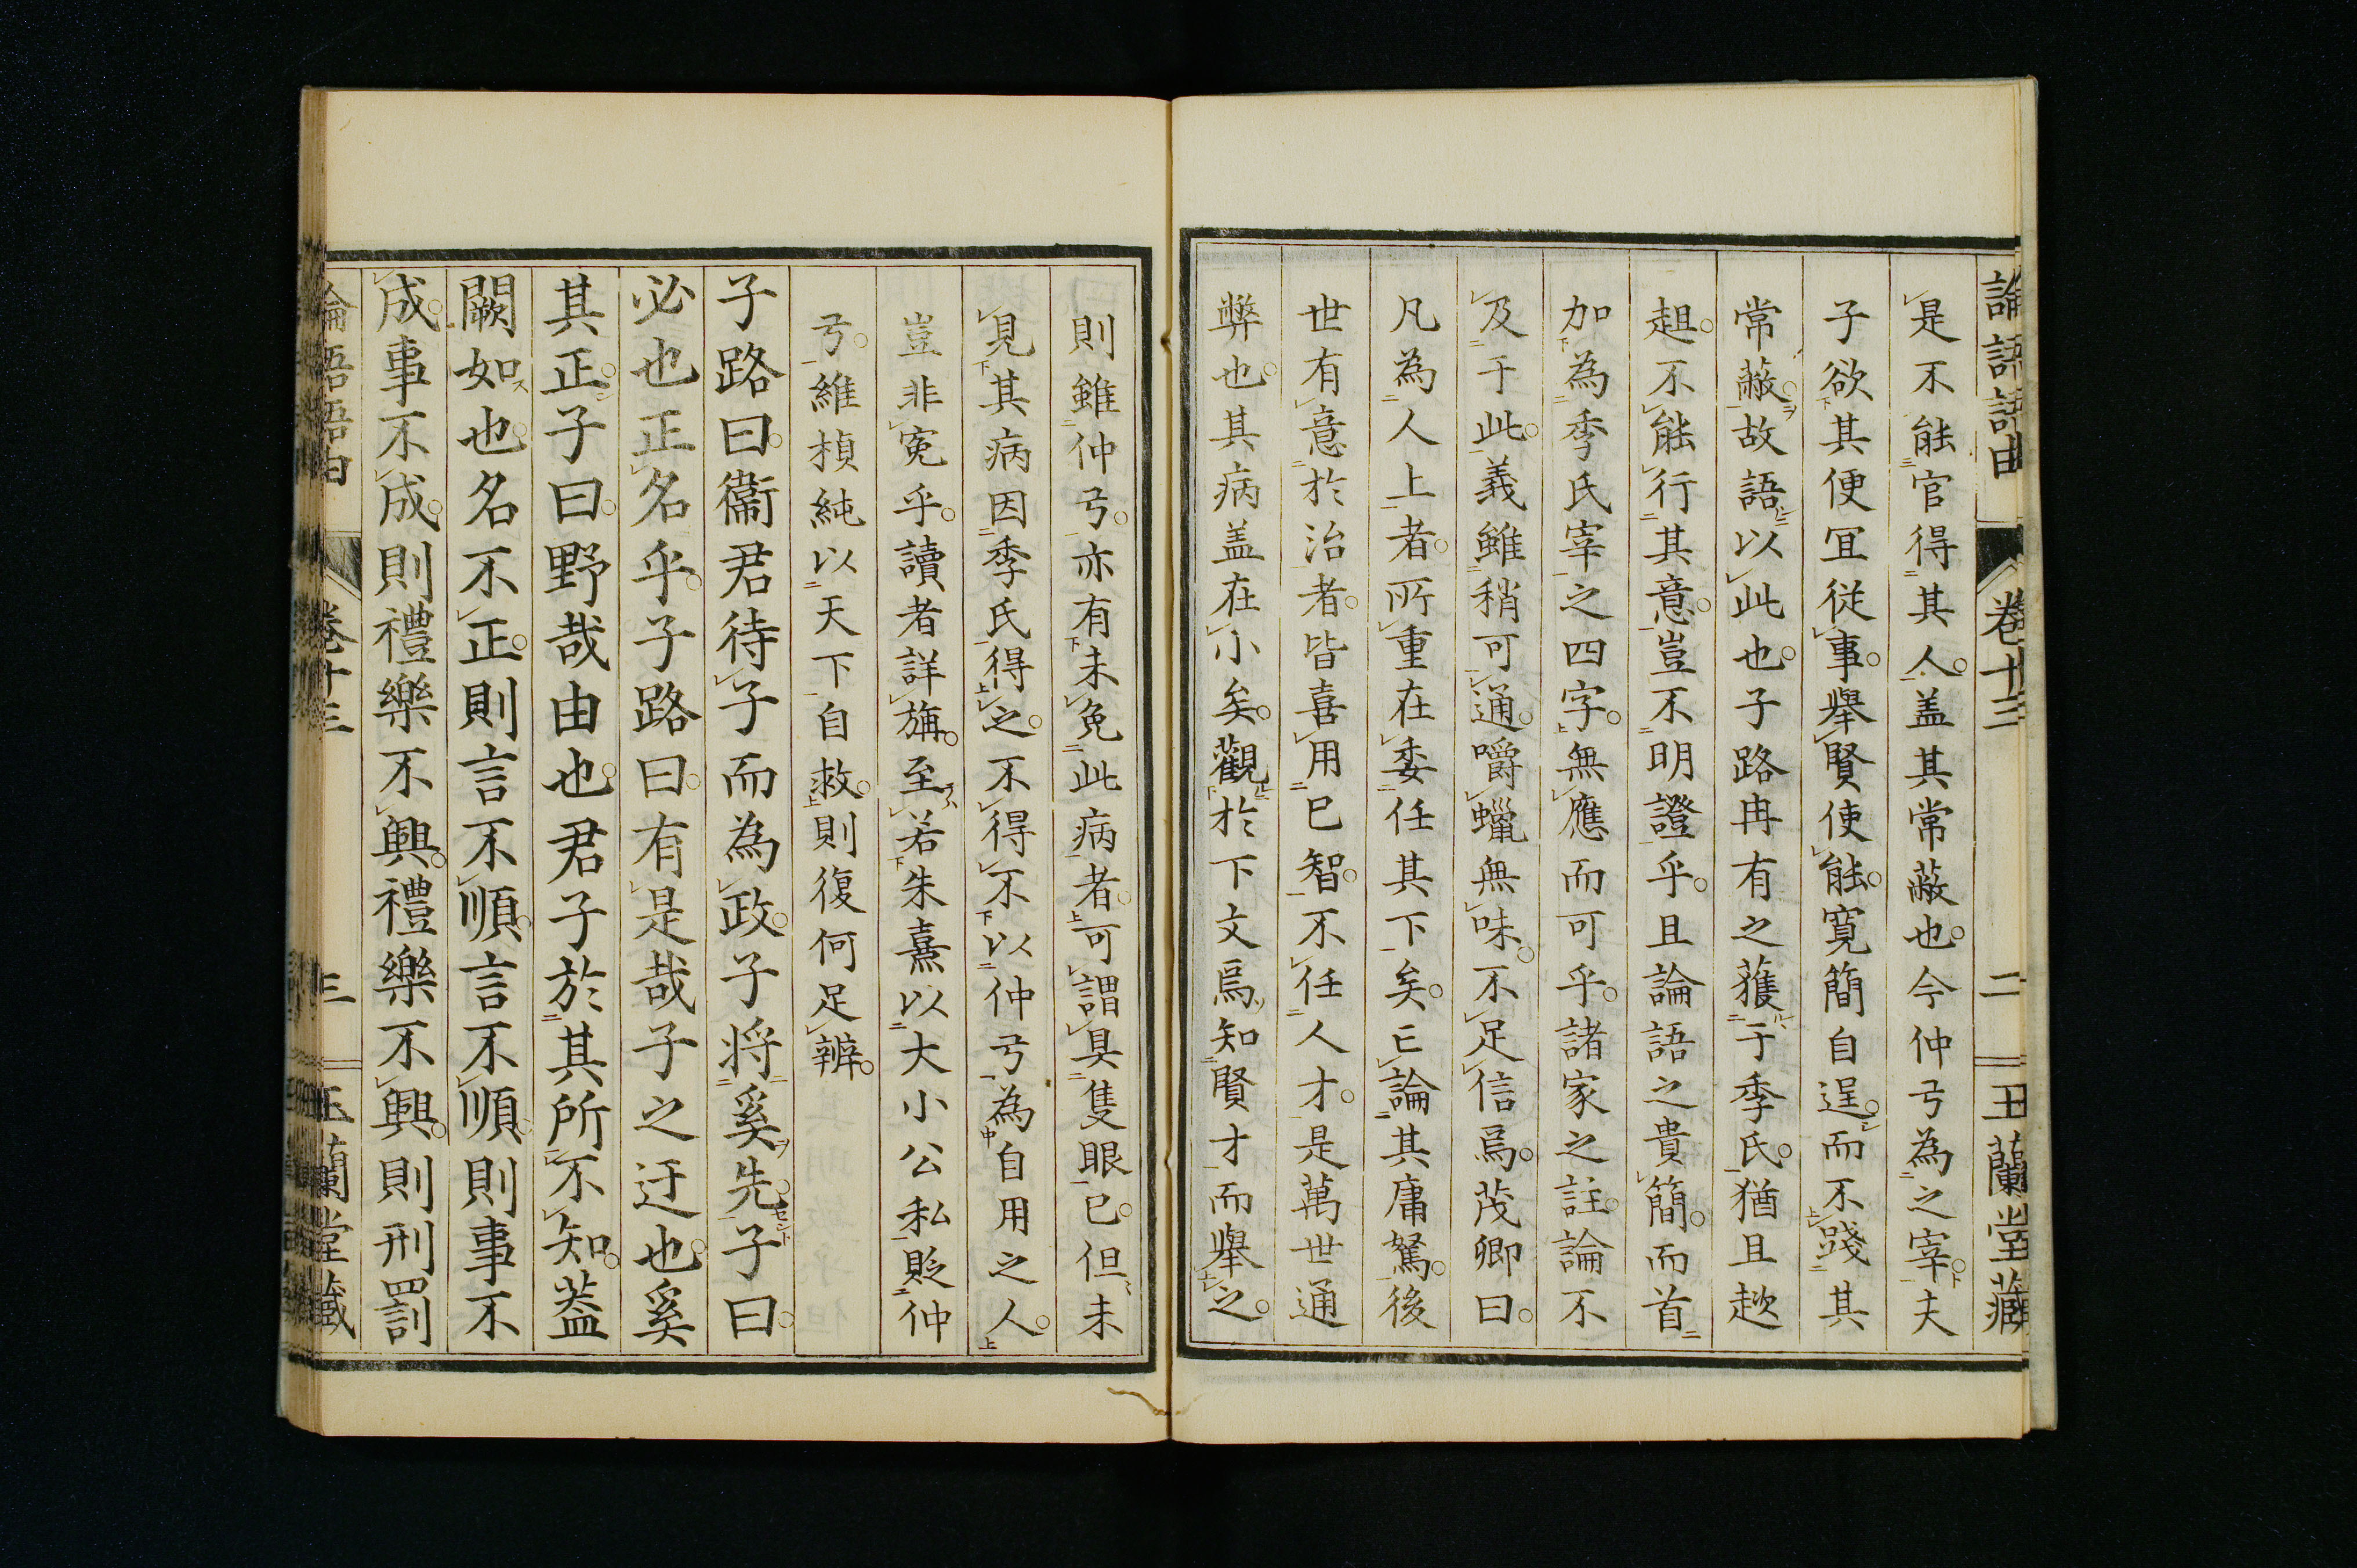 論語語由 卷十三 二 玉蘭堂藏
是不能官得其人盖其常蔽也今仲弓為之宰夫
子欲其便冝從事舉賢使能寬簡自逞而不踐其
常蔽故語以此也子路冉有之獲于季氏猶且趑
趄不能行其意豈不明證乎且論語之貴簡而首
加為季氏宰之四字無應而可乎諸家之註論不
及于此義雖稍可通嚼蠟無味不足信焉茂卿曰
凡為人上者所重在委任其下矣亡論其庸駑後
世有意於治者皆喜用已智不任人才是萬世通
弊也其病盖在小矣觀於下文焉知賢才而舉之
則雖仲弓亦有未免此病者可謂具隻眼已但未
見其病因季氏得之不得不以仲弓為自用之人
豈非寃乎讀者詳旃至若朱熹以大小公私貶仲
弓維楨純以天下自救則復何足辨
子路曰衞君待子而為政子将奚先子曰
必也正名乎子路曰有是哉子之迂也奚
其正子曰野哉由也君子於其所不知葢
闕如也名不正則言不順言不順則事不
成事不成則禮樂不興禮樂不興則刑罰
論語語由 卷十三 三 玉蘭堂藏